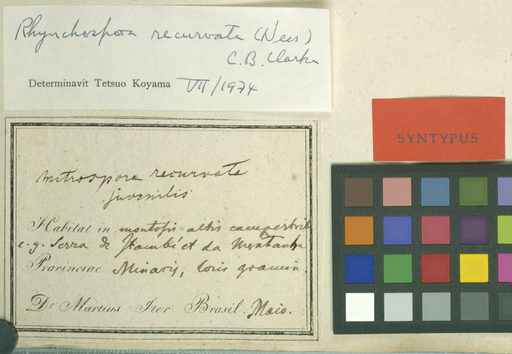 Rhynchospora recurvata (Nees)
C.B. Clarke
Determinavit Tetsuo Koyama VII/1974
SYNTYPUS
Mitrospora recurvata
juvenilis
Habitat in montosis altis campestrib
e.g. Serra de Itambé et da Mentanha
Provinciae Minarum, locis gramin.
Dr. Martius Iter Brasil. Maio.